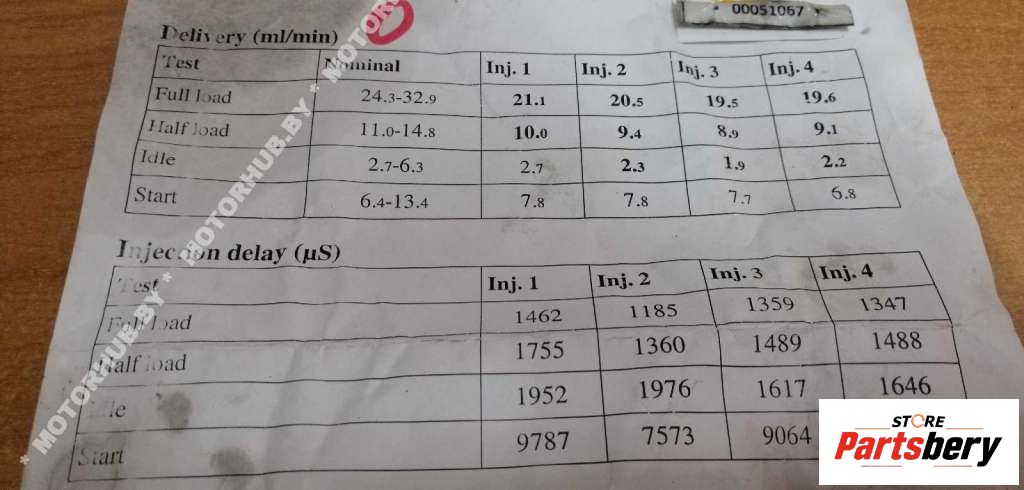 00051067
Delivery (ml/min)
Test Nominal Inj. 1 Inj. 2 Inj. 3 Inj. 4
Full load 24.3-32.9 21.1 20.5 19.5 19.6
Half load 11.0-14.8 10.0 9.4 8.9 9.1
Idle 2.7-6.3 2.7 2.3 1.9 2.2
Start 6.4-13.4 7.8 7.8 7.7 6.8
Injection delay (µS)
Test Inj. 1 Inj. 2 Inj. 3 Inj. 4
Full load 1462 1185 1359 1347
Half load 1755 1360 1489 1488
Idle 1952 1976 1617 1646
Start 9787 7573 9064
* MOTORHUB.BY * MOTORHUB.BY * MOTORHUB.BY * MOTOR
STORE
Partsbery